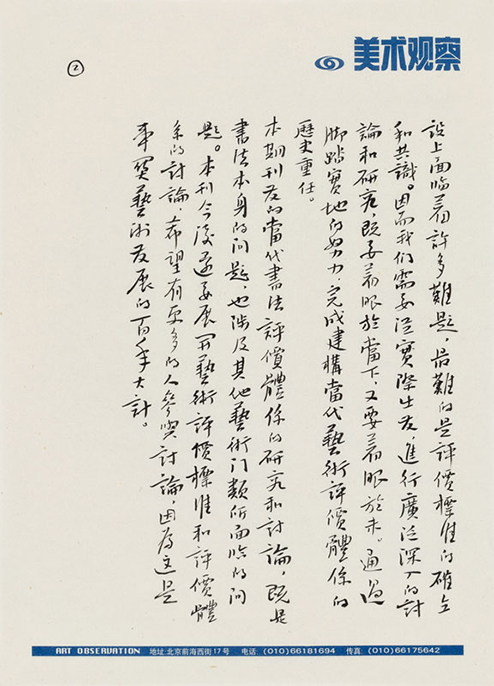 美术观察
②
設上面临着許多難题,最難的是評價標准的確立
和共識。因而我们需要從實際出发,進行廣泛深入的討
論和研究,既要着眼於當下,又要着眼於未。通過
脚踏實地的努力,完成建構當代藝術評價體係的
歷史重任。
本期刊发的當代書法評價體係的研究和討論,既是
書法本身的问题,也涉及其他藝術门類所面临的问
题。本刊今後还要展开藝術評價標准和評價體
系的討論,希望有更多的人參與討論,因为这是
事関藝術发展的百年大計。
ART OBSERVATION 地址:北京前海西街17号 电话:(010)66181694 传真:(010)66175642